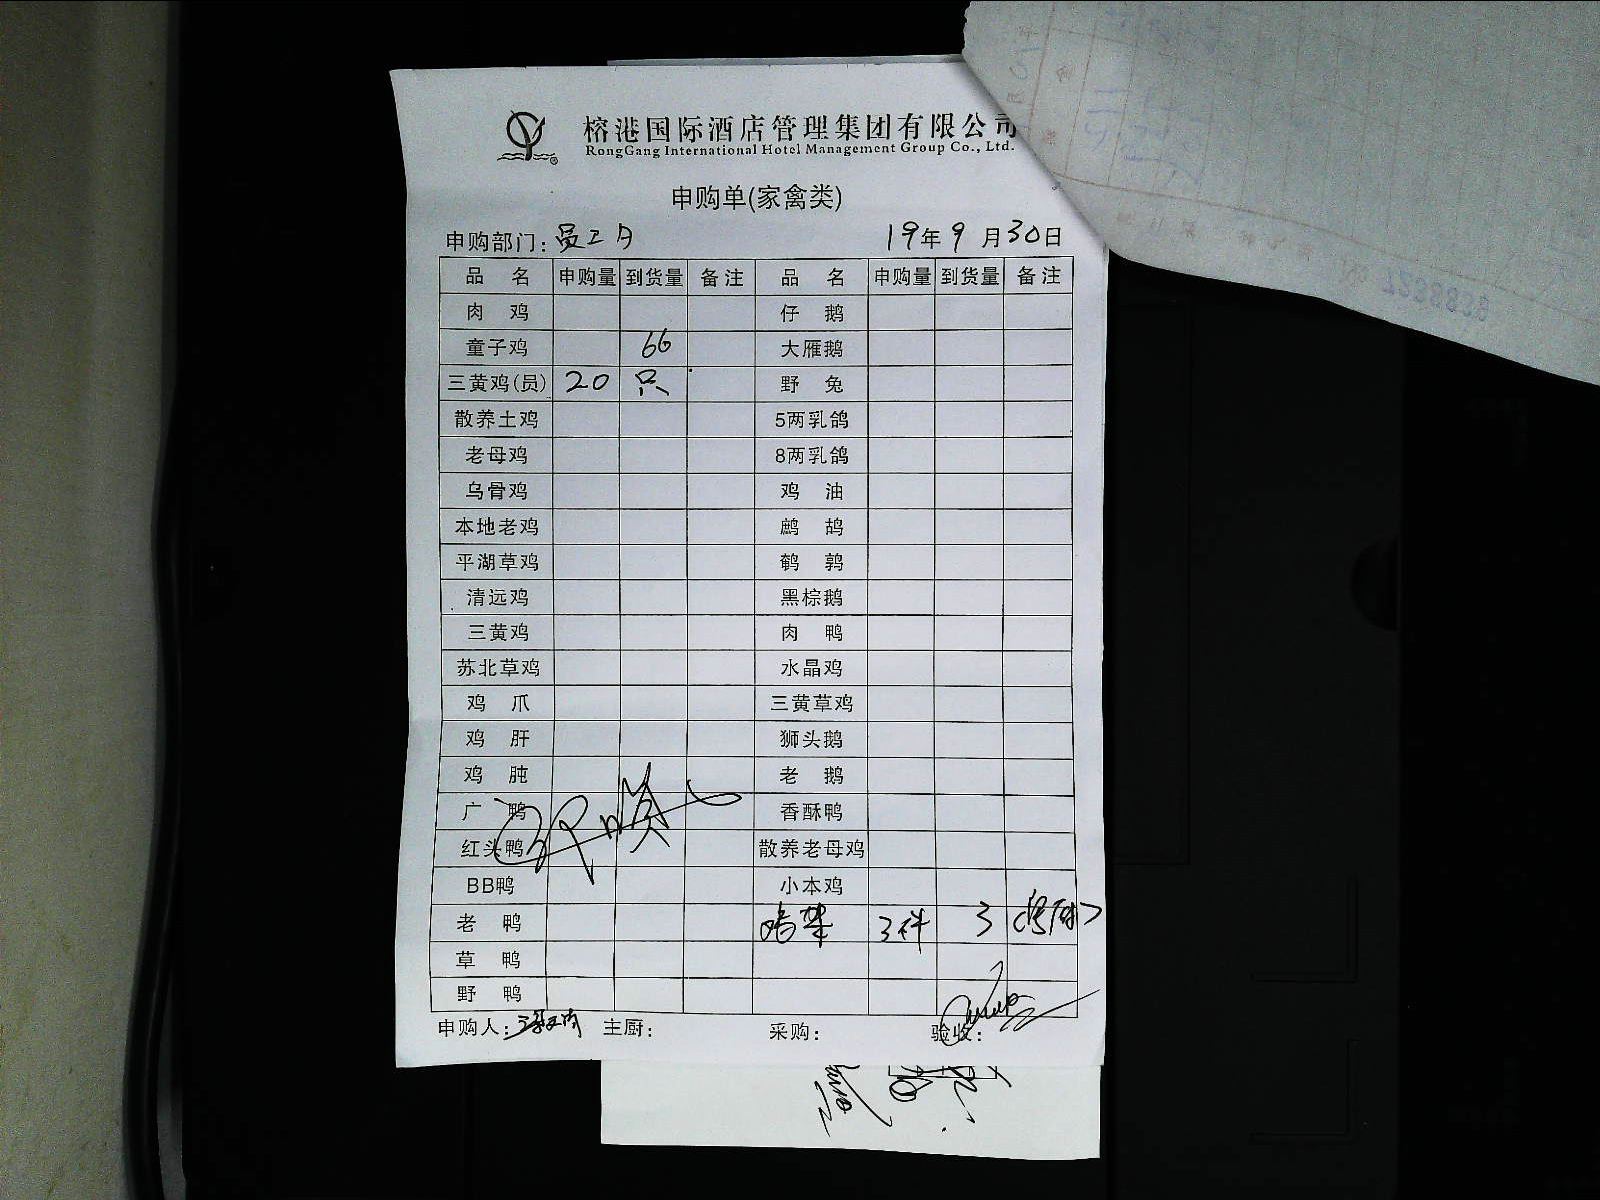 榕港国际酒店管理集团有限公司
RongGang International Hotel Management Group Co., Ltd.
申购单(家禽类)
申购部门: 员工 19年9月30日
品名 申购量 到货量 备注 品名 申购量 到货量 备注
肉鸡 仔鹅
童子鸡 66 大雁鹅
三黄鸡(员) 20 只 野兔
散养土鸡 5两乳鸽
老母鸡 8两乳鸽
乌骨鸡 鸡油
本地老鸡 鹧鸪
平湖草鸡 鹌鹑
清远鸡 黑棕鹅
三黄鸡 肉鸭
苏北草鸡 水晶鸡
鸡爪 三黄草鸡
鸡肝 狮头鹅
鸡肫 老鹅
广鸭 香酥鸭
红头鸭 散养老母鸡
BB鸭 小本鸡
老鸭 3 3
草鸭
野鸭
申购人: 主厨: 采购: 验收: